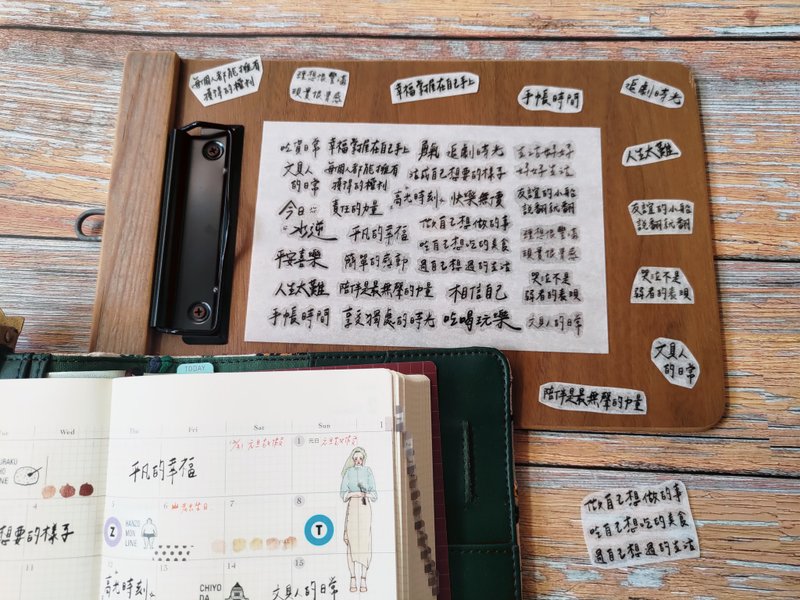 每個人都能擁有
獲得的權利
理想很豐滿
現實很骨感
幸福掌握在自己手上
手帳時間
追劇時光
人生太難
友誼的小船
說翻就翻
哭泣不是
弱者的表現
文具人
的日常
陪伴是最無聲的力量
吃貨日常 幸福掌握在自己手上 勇氣 追劇時光 生活好好
文具人 每個人都能擁有 活成自己想要的樣子 好好生活
的日常 獲得的權利
今日 責任的力量 高光時刻 快樂無價 友誼的小船
說翻就翻
水逆 平凡的幸福 做自己想做的事 理想很豐滿
吃自己想吃的美食 現實很骨感
平安喜樂 簡單的感動 過自己想過的生活 哭泣不是
人生太難 陪伴是最無聲的力量 相信自己 弱者的表現
手帳時間 享受獨處的時光 吃喝玩樂 文具人的日常
做自己想做的事
吃自己想吃的美食
過自己想過的生活
TODAY
Wed Thu Fri Sat Sun 1
元旦
1 元日
平凡的幸福
LINE
4 5 6 7 8
Z HANZO
MON
LINE
T
想要的樣子
15
高光時刻
CHIYO
DA
文具人的日常